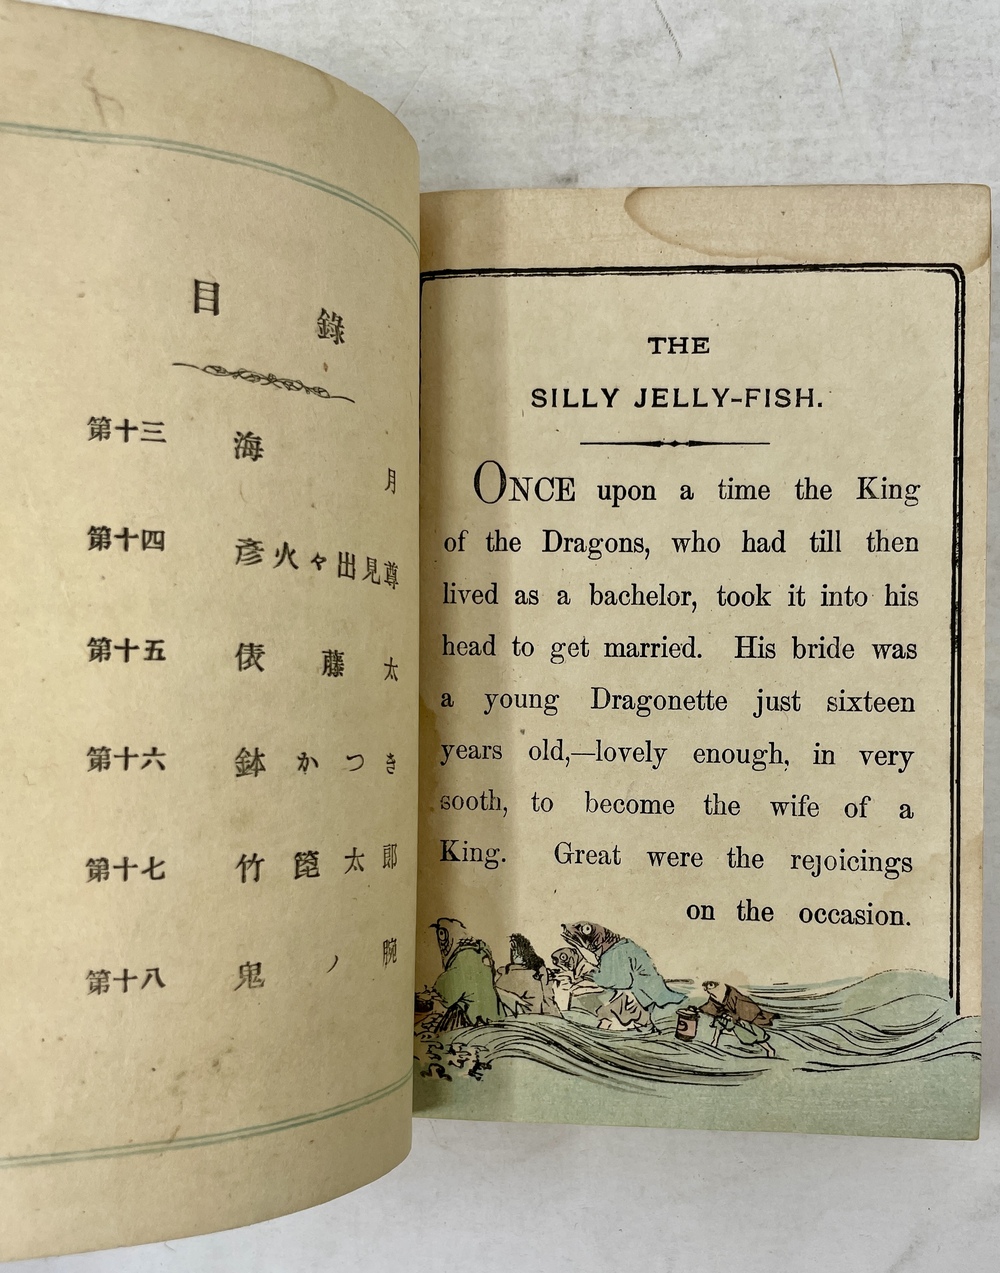 目錄
第十三 海月
第十四 彥火々出見尊
第十五 俵藤太
第十六 鉢かつき
第十七 竹箆太郎
第十八 鬼ノ腕
THE
SILLY JELLY-FISH.
ONCE upon a time the King
of the Dragons, who had till then
lived as a bachelor, took it into his
head to get married. His bride was
a young Dragonette just sixteen
years old,—lovely enough, in very
sooth, to become the wife of a
King. Great were the rejoicings
on the occasion.